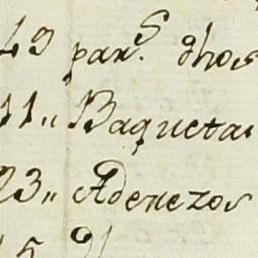 par.S dhos
11,, Baquetas
23,, Aderezos